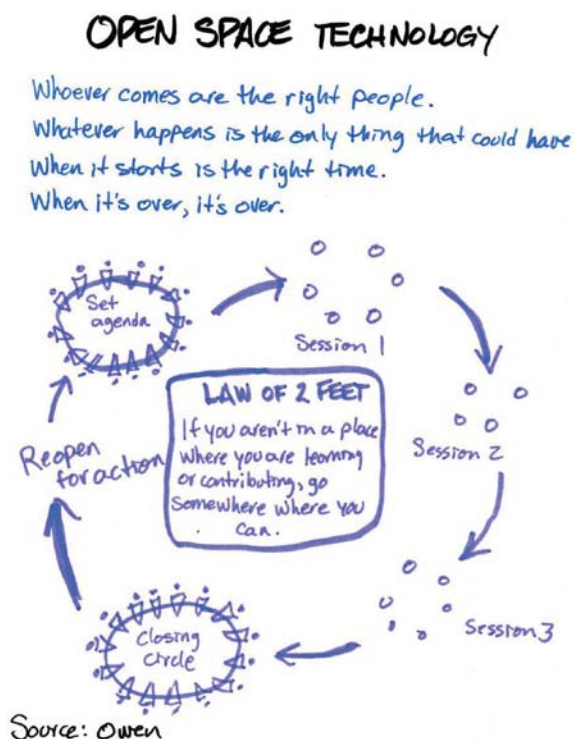 OPEN SPACE TECHNOLOGY
Whoever comes are the right people.
Whatever happens is the only thing that could have
When it starts is the right time.
When it's over, it's over.
Set
agenda
Session 1
LAW OF 2 FEET
If you aren't in a place
where you are learning
or contributing, go
somewhere where you
can.
Session 2
Reopen
for action
Session 3
Closing
circle
Source: Owen